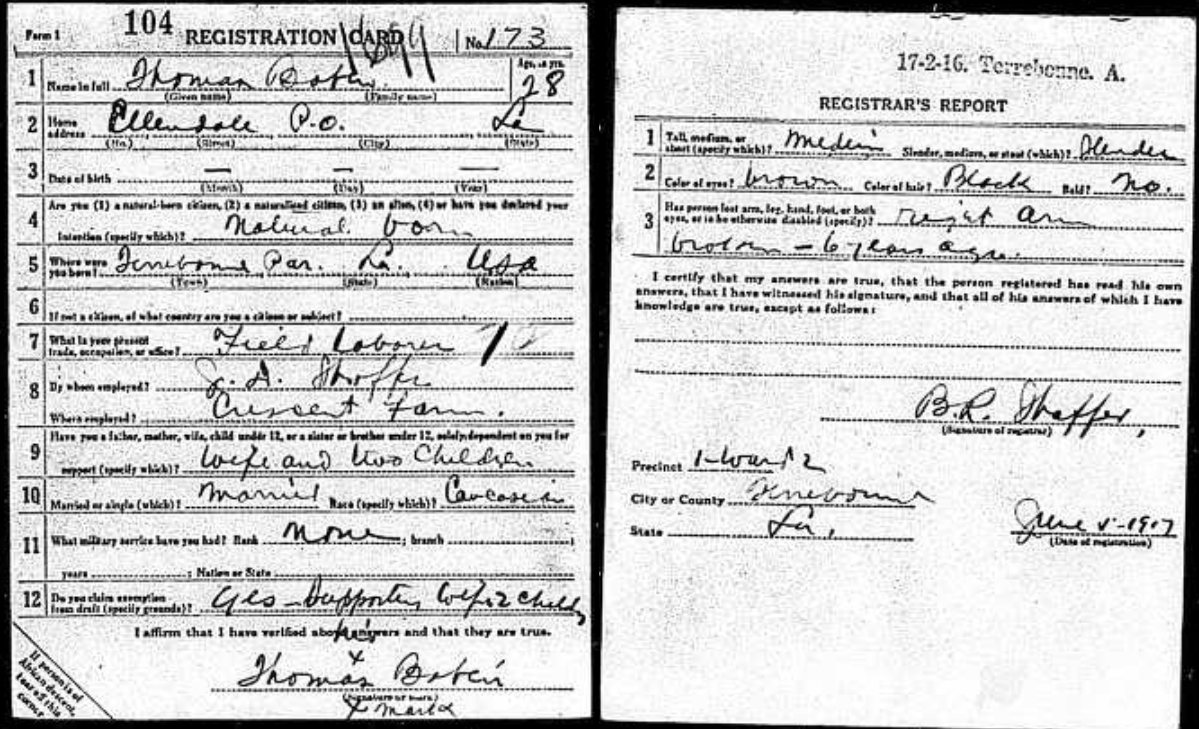 Form 1 104 REGISTRATION CARD No. 173
1 Name in full Thomas Bobin Age, in yrs. 28
(Given name) (Family name)
2 Home address Ellendale P.O. La
(No.) (Street) (City) (State)
3 Date of birth — — —
(Month) (Day) (Year)
4 Are you (1) a natural-born citizen, (2) a naturalized citizen, (3) an alien, (4) or have you declared your
intention (specify which)? Natural born
5 Where were you born? Terrebonne Par. La. USA
(Town) (State) (Nation)
6 If not a citizen, of what country are you a citizen or subject?
7 What is your present trade, occupation, or office? Field Laborer
8 By whom employed? J. A. Shaffer
Where employed? Crescent Farm.
9 Have you a father, mother, wife, child under 12, or a sister or brother under 12, solely dependent on you for
support (specify which)? Wife and two Children
10 Married or single (which)? Married Race (specify which)? Caucasian
11 What military service have you had? Rank None ; branch ;
years ; Nation or State
12 Do you claim exemption from draft (specify grounds)? Yes - Supporting Wife 2 Child
I affirm that I have verified above answers and that they are true.
his
Thomas x Bobin
(Signature or mark)
x mark
If person is of
African descent,
tear off this
corner
17-2-16. Terrebonne. A.
REGISTRAR'S REPORT
1 Tall, medium, or short (specify which)? Medium Slender, medium, or stout (which)? Slender
2 Color of eyes? brown Color of hair? Black Bald? No.
3 Has person lost arm, leg, hand, foot, or both eyes, or is he otherwise disabled (specify)? right arm
broken - 6 years ago.
I certify that my answers are true, that the person registered has read his own
answers, that I have witnessed his signature, and that all of his answers of which I have
knowledge are true, except as follows:
B.R. Shaffer,
(Signature of registrar)
Precinct 1-Ward 2
City or County Terrebonne
State La, June 5-1917
(Date of registration)